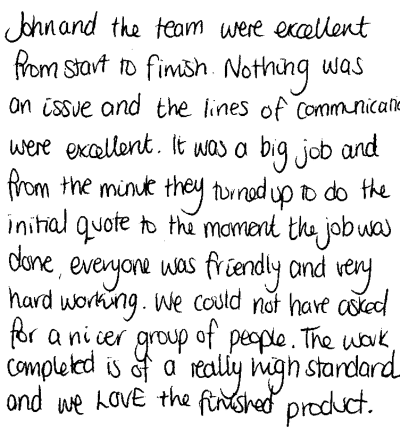 John and the team were excellent
from start to finish. Nothing was
an issue and the lines of communicati
were excellent. It was a big job and
from the minute they turned up to do the
initial quote to the moment the job was
done, everyone was friendly and very
hard working. We could not have asked
for a nicer group of people. The work
completed is of a really high standard
and we LOVE the finished product.